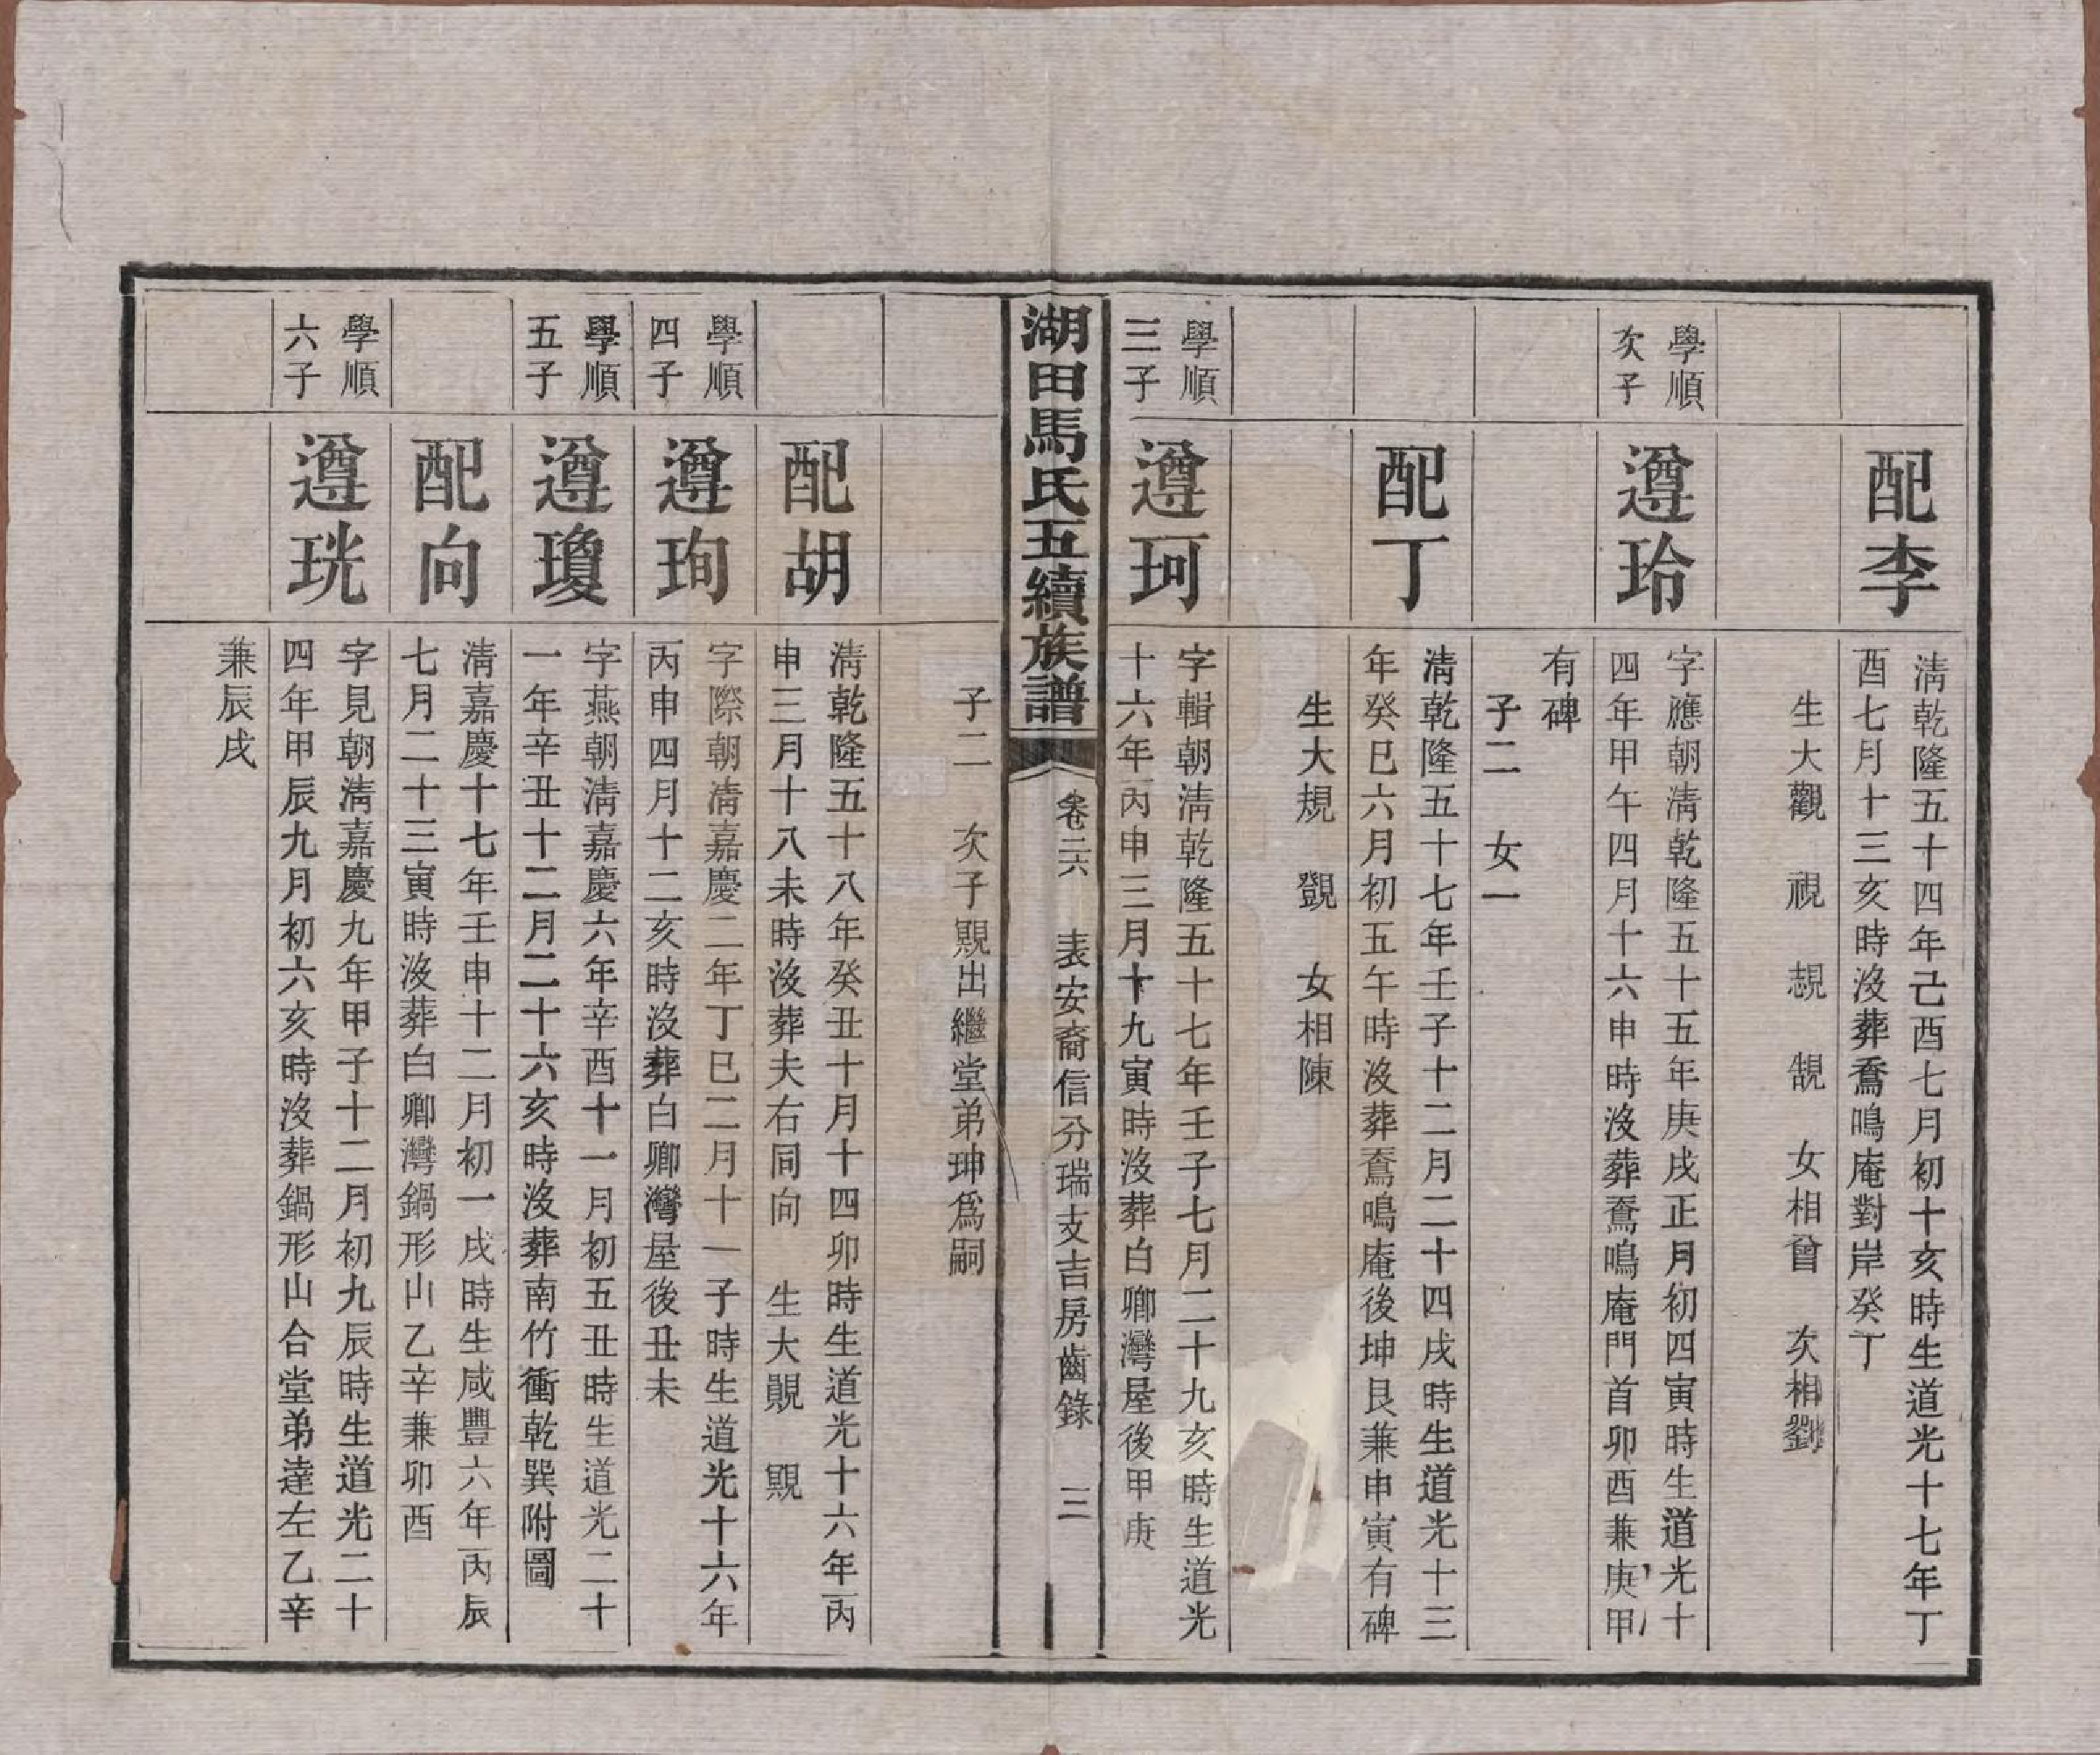 配李
清乾隆五十四年己酉七月初十亥時生道光十七年丁
酉七月十三亥時沒葬鴦鳴庵對岸癸丁
生大觀　視　覟　覩　女相曾　次相劉
學順
次子
遵玲
字應朝清乾隆五十五年庚戌正月初四寅時生道光十
四年甲午四月十六申時沒葬鴦鳴庵門首卯酉兼庚甲
有碑
子二　女一
配丁
清乾隆五十七年壬子十二月二十四戌時生道光十三
年癸巳六月初五午時沒葬鴦鳴庵後坤艮兼申寅有碑
生大規　覴　女相陳
學順
三子
遵珂
字輯朝清乾隆五十七年壬子七月二十九亥時生道光
十六年丙申三月十九寅時沒葬白卿灣屋後甲庚
湖田馬氏五續族譜
卷二六　表安裔信分瑞支吉房齒錄　三
子二　次子覭出繼堂弟珅爲嗣
配胡
清乾隆五十八年癸丑十月十四卯時生道光十六年丙
申三月十八未時沒葬夫右同向　生大覞　覭
學順
四子
遵珣
字際朝清嘉慶二年丁巳二月十一子時生道光十六年
丙申四月十二亥時沒葬白卿灣屋後丑未
學順
五子
遵瓊
字燕朝清嘉慶六年辛酉十一月初五丑時生道光二十
一年辛丑十二月二十六亥時沒葬南竹衝乾巽附圖
配向
清嘉慶十七年壬申十二月初一戌時生咸豐六年丙辰
七月二十三寅時沒葬白卿灣鍋形山乙辛兼卯酉
學順
六子
遵珖
字見朝清嘉慶九年甲子十二月初九辰時生道光二十
四年甲辰九月初六亥時沒葬鍋形山合堂弟達左乙辛
兼辰戌